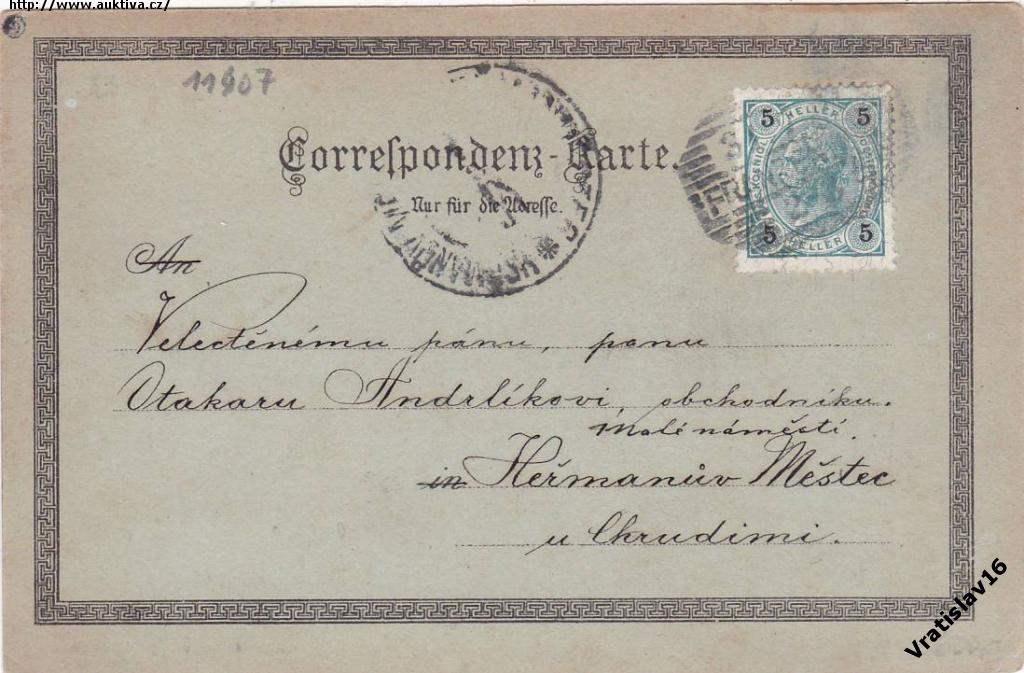 http://www.auktiva.cz/
11907
Correspondenz-Karte.
Nur für die Adresse.
5 HELLER 5
5 HELLER 5
An
Velectěnému pánu, panu
Otakaru Andrlíkovi, obchodníku.
Malé náměstí.
in Heřmanův Městec
u Chrudimi.
Vratislav16